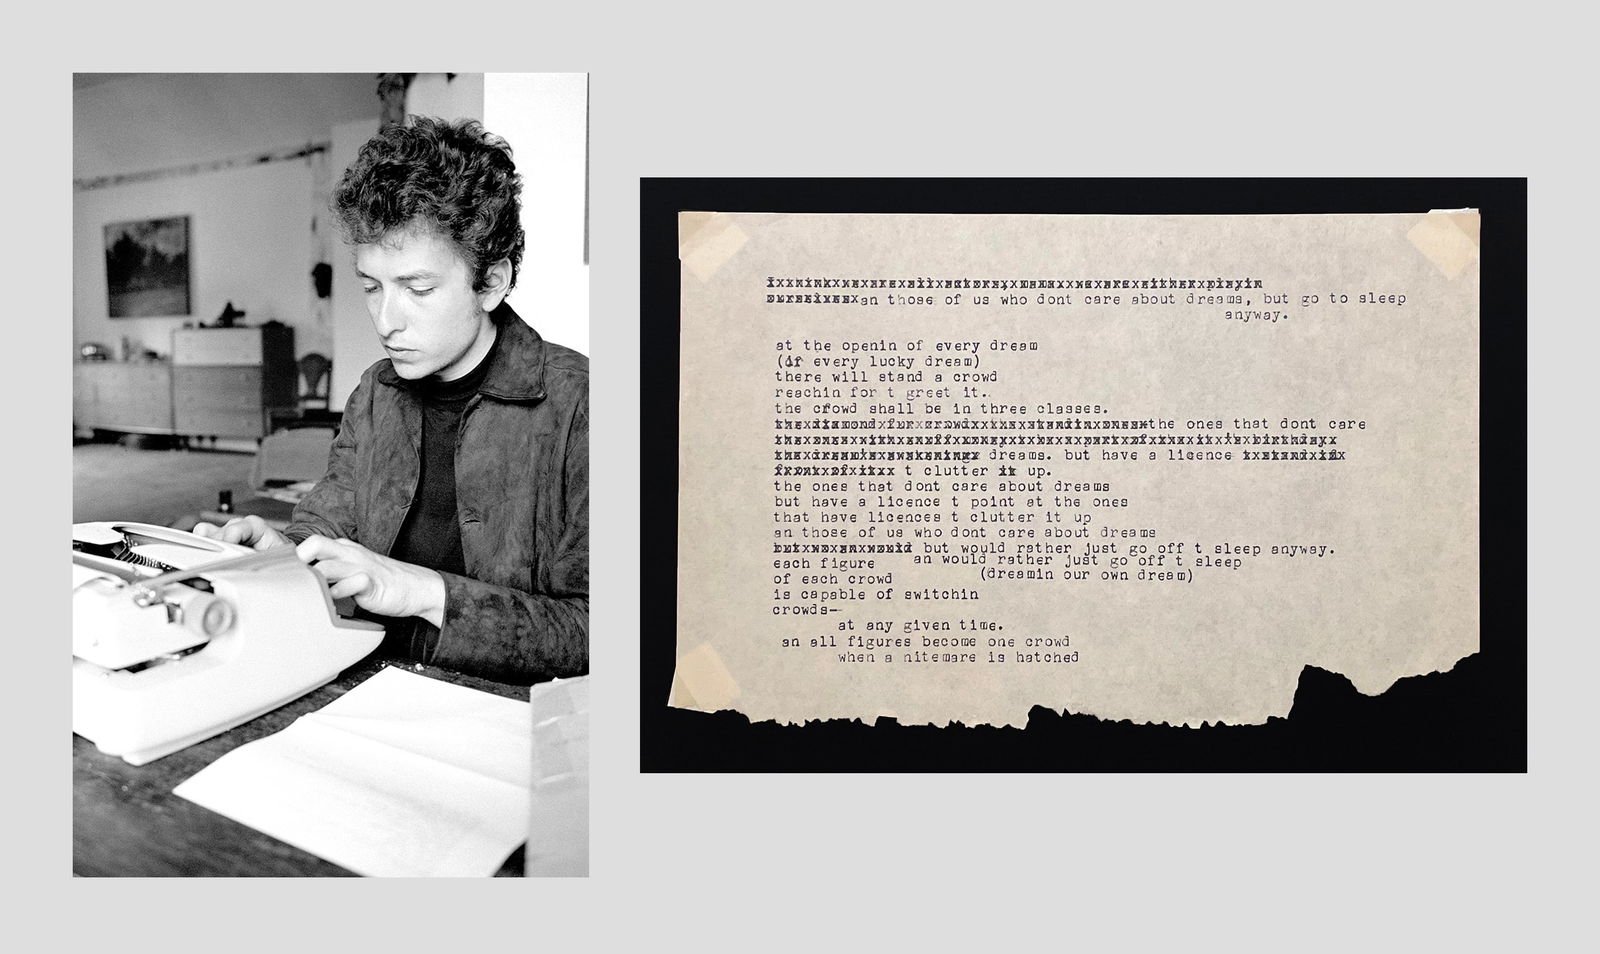 an those of us who dont care about dreams, but go to sleep
anyway.
at the openin of every dream
(if every lucky dream)
there will stand a crowd
reachin for t greet it.
the crowd shall be in three classes.
the ones that dont care
dreams. but have a licence
t clutter it up.
the ones that dont care about dreams
but have a licence t point at the ones
that have licences t clutter it up
an those of us who dont care about dreams
but would rather just go off t sleep anyway.
each figure an would rather just go off t sleep
of each crowd (dreamin our own dream)
is capable of switchin
crowds—
at any given time.
an all figures become one crowd
when a nitemare is hatched